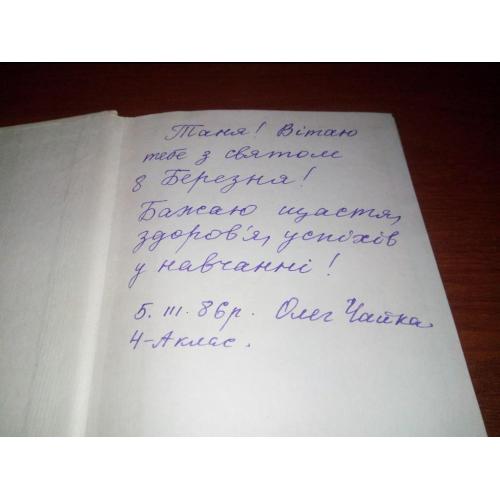 Таня! Вітаю
тебе з святом
8 Березня!
Бажаю щастя,
здоров'я, успіхів
у навчанні!
5. III. 86р. Олег Чайка
4-А клас.